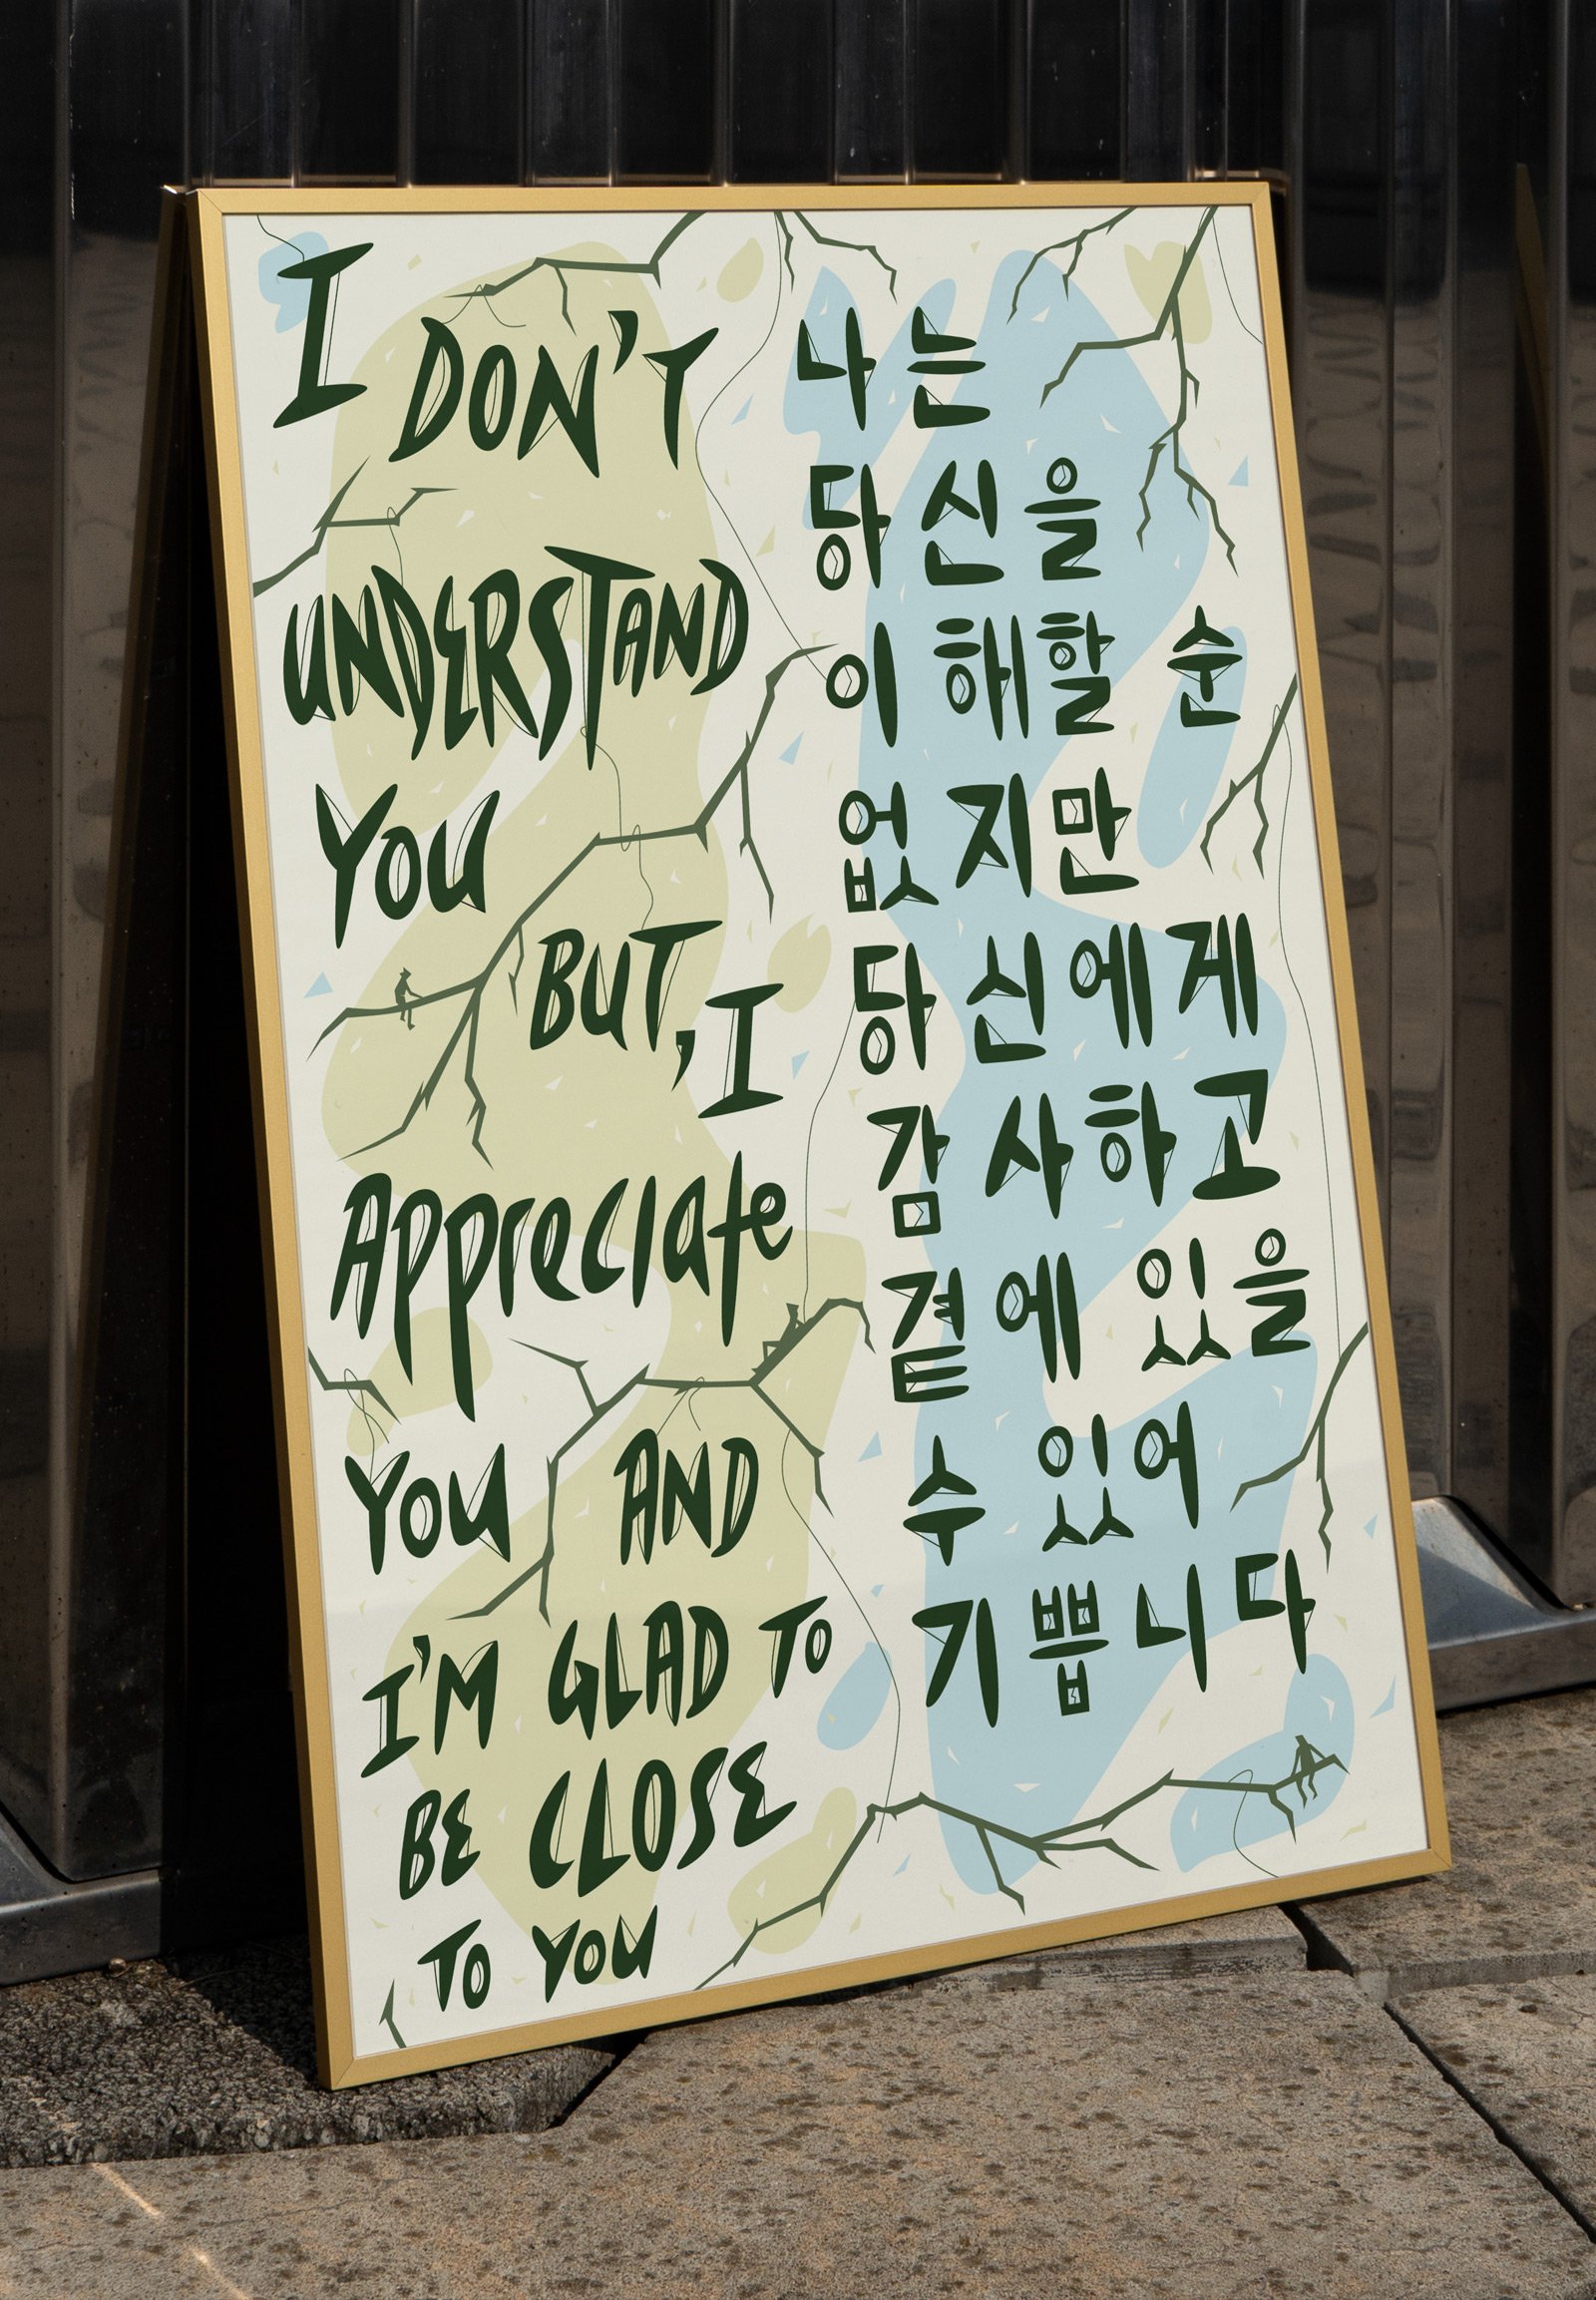 I DON'T
UNDERSTAND
YOU
BUT, I
Appreciate
YOU AND
I'M GLAD TO
BE CLOSE
TO YOU
나는
당신을
이해할 순
없지만
당신에게
감사하고
곁에 있을
수 있어
기쁩니다